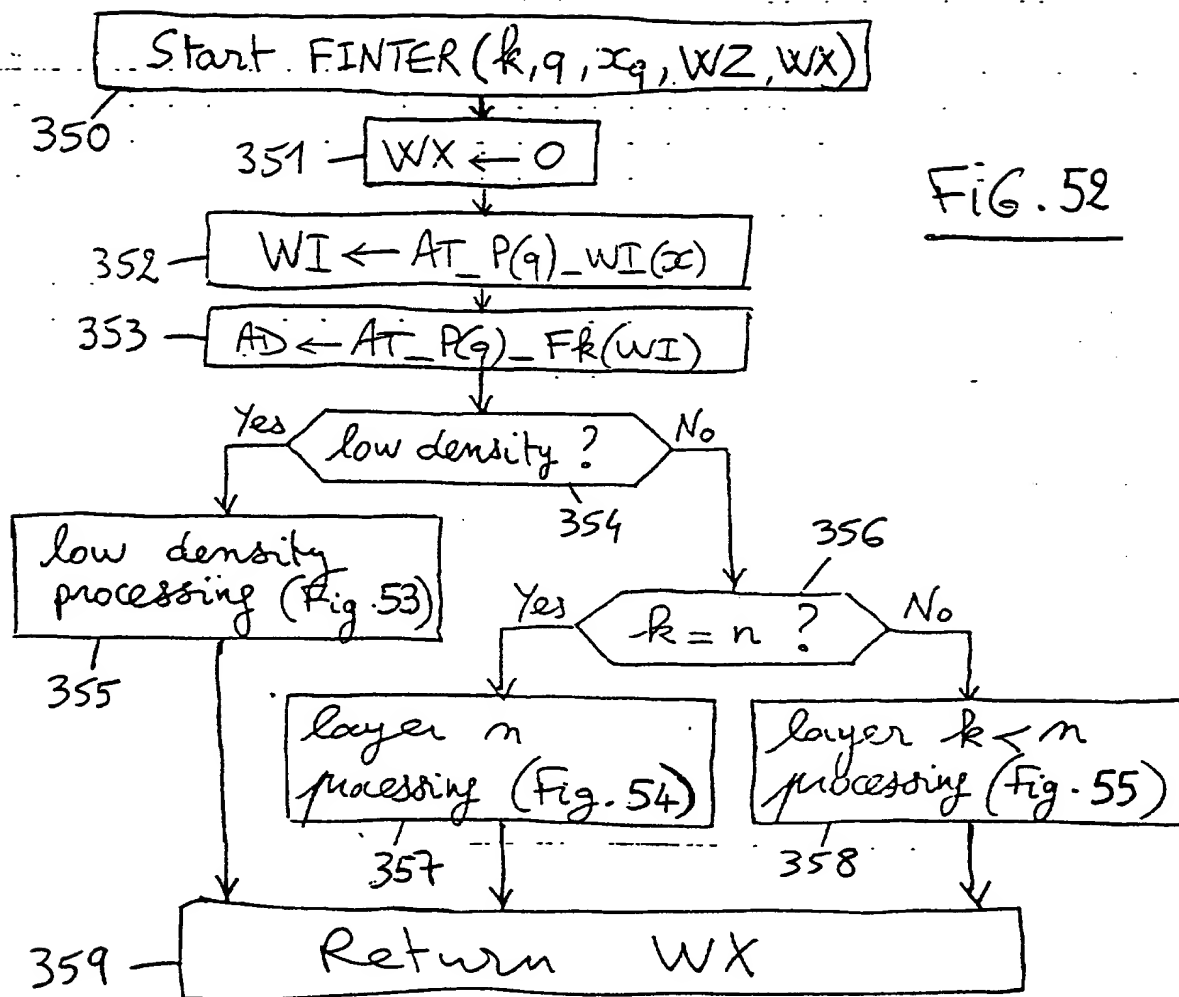 Start FINTER (k, q, x_q, WZ, WX)
350
351
WX ← 0
FiG. 52
352
WI ← AT_P(q)_WI(x)
353
AD ← AT_P(q)_Fk(WI)
Yes
low density ?
No
354
low density
processing (Fig. 53)
355
356
Yes
k = n ?
No
layer n
processing (Fig. 54)
357
layer k < n
processing (Fig. 55)
358
359
Return WX